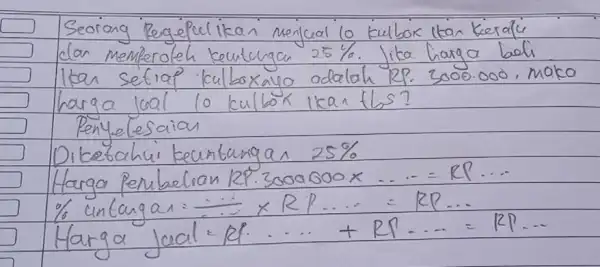 Seorang Pegepul ikan menjual 10 kulbox ikan Kerapu
dan memperoleh keuntungan 25 %. Jika harga beli
ikan setiap kulboxnya adalah RP. 3000.000, maka
harga jual 10 kulbox ikan tbs?
Penyelesaian
Diketahui keuntungan 25%
Harga Pembelian RP. 3000000 x ..... = RP....
% untungan = ..... x RP..... = RP...
Harga jual = RP. ..... + RP..... = RP...